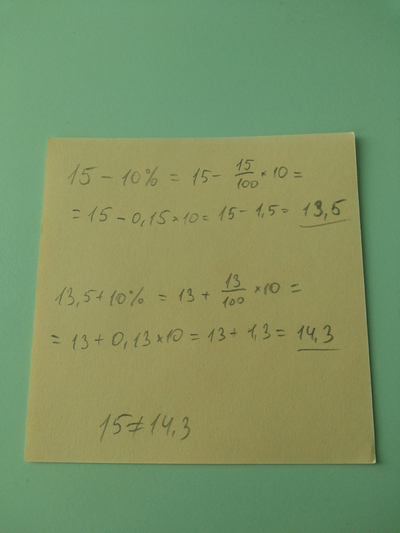 15 - 10% = 15 - 15/100 × 10 =
= 15 - 0,15 × 10 = 15 - 1,5 = 13,5
13,5 + 10% = 13 + 13/100 × 10 =
= 13 + 0,13 × 10 = 13 + 1,3 = 14,3
15 ≠ 14,3